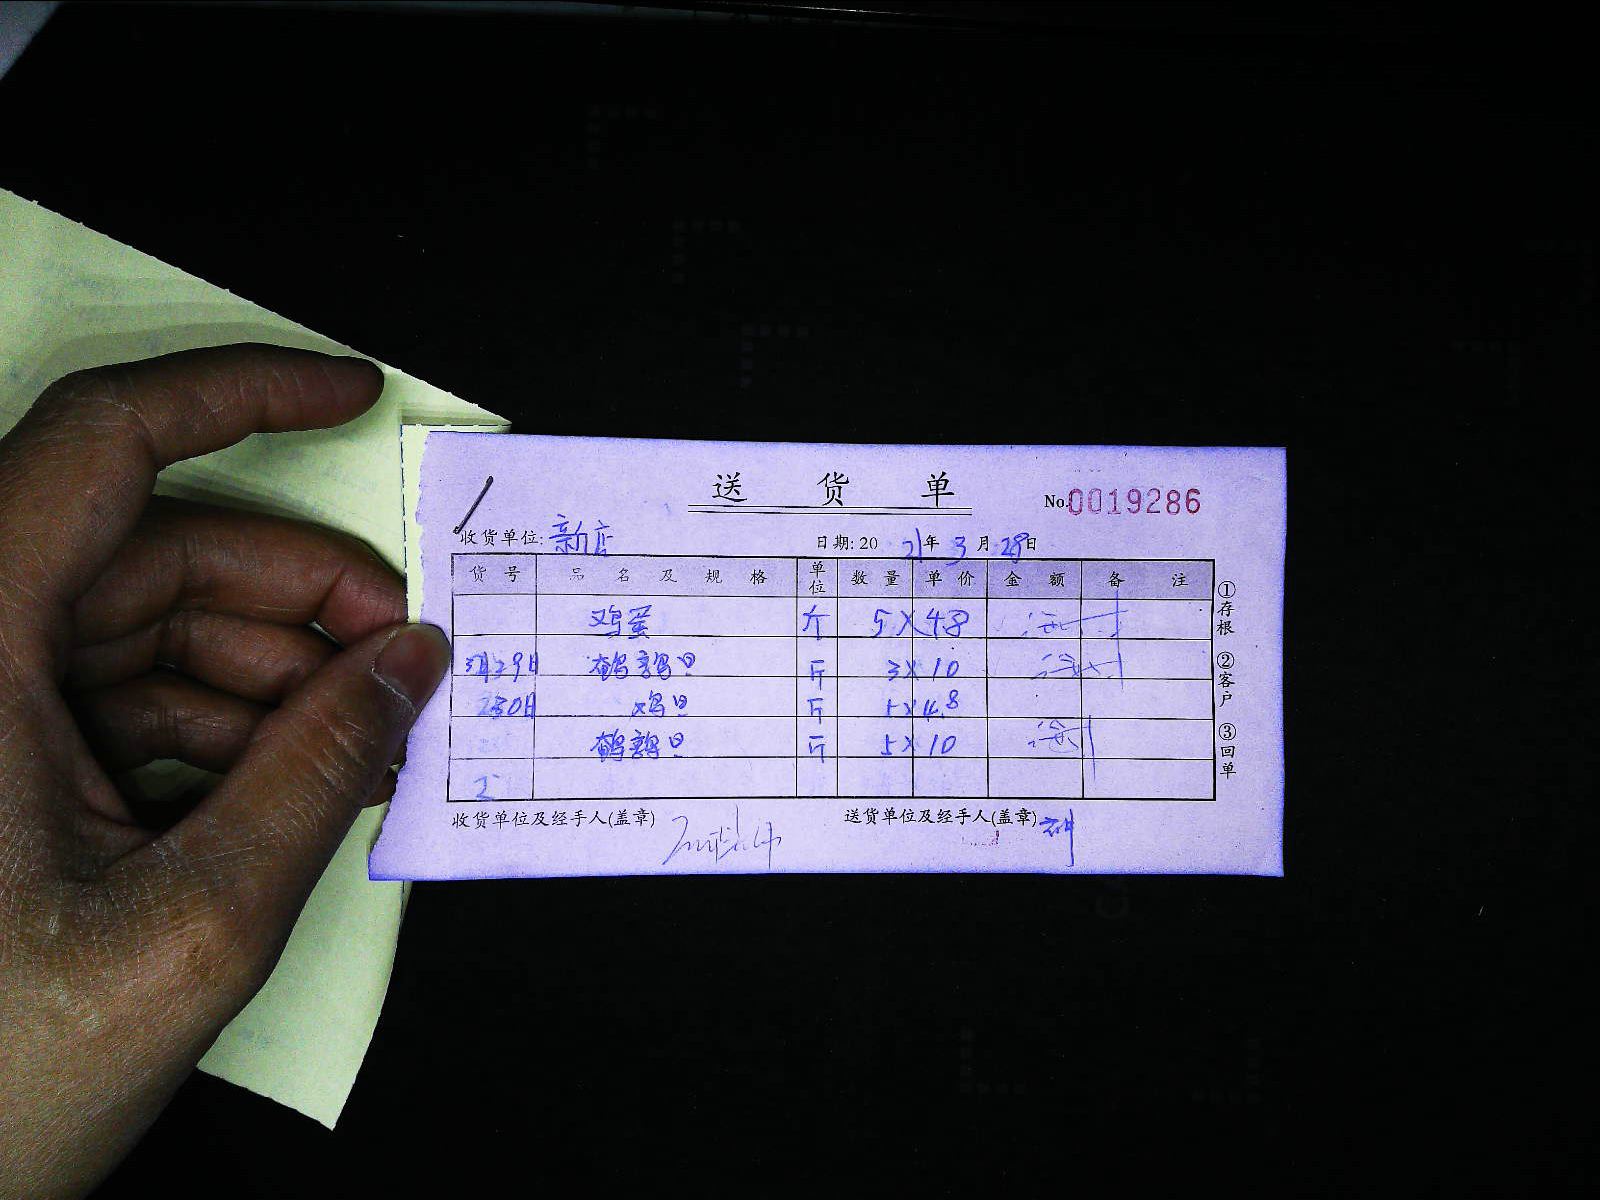 送 货 单
No.0019286
收货单位: 新店 日期: 2021年3月28日
货号 品名及规格 单位 数量 单价 金额 备注
鸡蛋 斤 5 X 4.8
3月29日 鹌鹑旦 斤 3 X 10
30日 鸡旦 斤 5 X 4.8
鹌鹑旦 斤 5 X 10
收货单位及经手人(盖章) 送货单位及经手人(盖章)
①存根 ②客户 ③回单